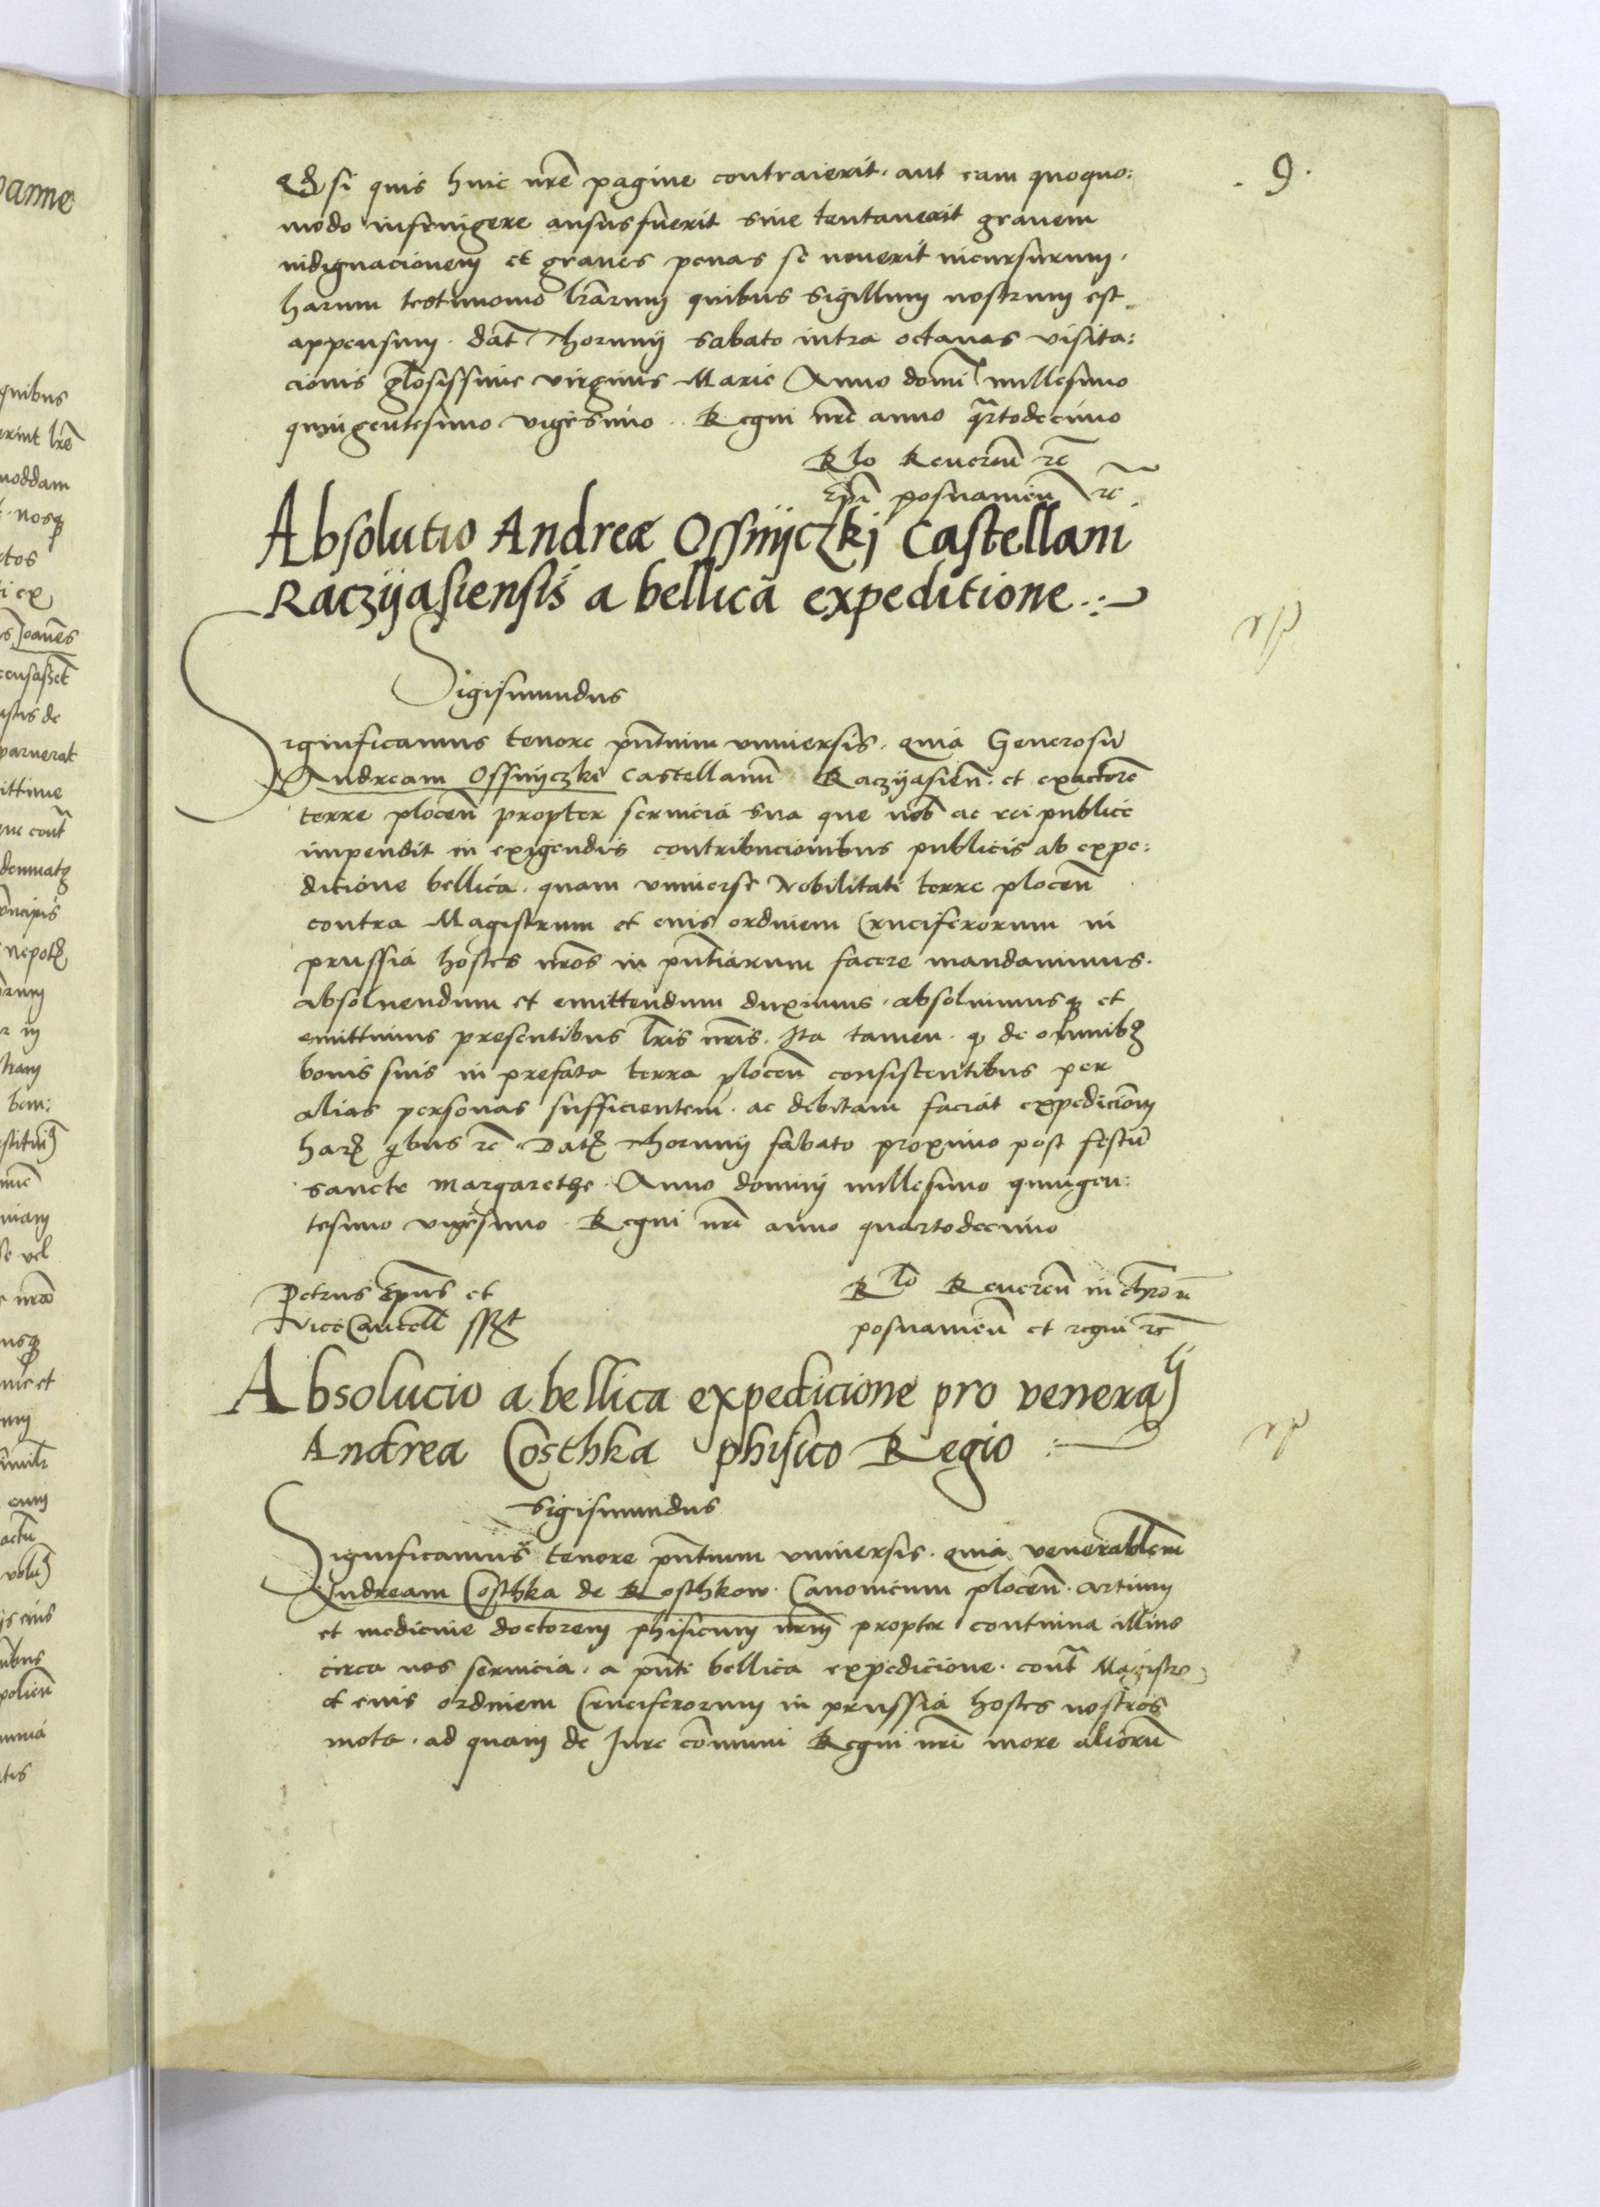 9.
Qd si quis huic nre pagine contraierit. aut eam quoquo:
modo infringere ausus fuerit sive tentaverit gravem
indignacionem et graves penas se noverit incursurum.
harum testimonio lrarum quibus sigillum nostrum est
appensum. dat Thorunij sabato intra octavas visita:
cionis glosissime virginis Marie Anno domi millesimo
quingentesimo vigesimo. Regni nri anno qrtodecimo
Rlo Reveren rc
Epi posnanien rc
Absolutio Andreæ Ossnijczkj Castellani
Raczijasiensis a bellica expeditione
Sigismundus
Significamus tenore pntium universis. quia Generosu
Andream Ossnijczki castellanu Raczijasien. et exactore
terre plocen propter servicia sua que nob ac rei publice
impendit in exigendis contribucionibus publicis ab expe:
dicione bellica. quam universe Nobilitati terre plocen
contra Magistrum et eius ordinem Cruciferorum in
prussia hostes nros in pntiarum facere mandavimus.
absolvendum et emittendum duximus. absolvimusq et
emittimus presentibus lris nris. Ita tamen. q de omnibz
bonis suis in prefata terra plocen consistentibus per
alias personas sufficientem. ac debitam faciat expedicionem
har qbus rc. Dat Thorunij sabato proximo post festu
sancte Margarethe. Anno domini millesimo quingen:
tesimo vigesimo. Regni nri anno quartodecimo
Petrus Epus et
ViceCancell sst
Rlo Reveren in chro
posnanien et regni rc
Absolucio a bellica expedicione pro venerali
Andrea Costhka phisico Regio
Sigismundus
Significamus tenore pntium universis. quia venerablem
Andream Costhka de Rosthkow. Canonicum plocen. artium
et medicine doctorem phisicum nrum propter continua illius
circa nos servicia. a pnti bellica expedicione. cont Magistro
et eius ordinem Cruciferorum in prussia hostes nostros
mota. ad quam de Jure comuni Regni nri more alioru